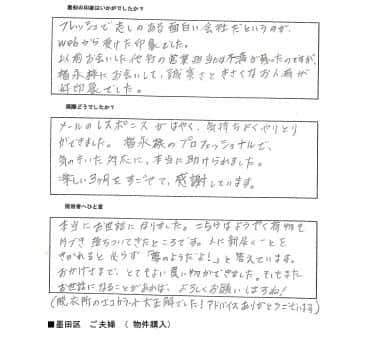 最初の印象はいかがでしたか？
フレッシュで志しのある面白い会社だというのが、
webから受けた印象でした。
以前お会いした他社の営業担当は不満が募ったのですが、
お会いして、誠実さときさくなお人柄が
好印象でした。
実際どうでしたか？
メールのレスポンスがはやく、気持ちよくやりとり
ができました。 のプロフェッショナルで、
気のきいた対応に、本当に助けられました。
楽しい3ヶ月をすごせて、感謝しています。
担当者へひと言
本当にお世話になりました。こちらはようやく荷物も
片づき落ちついてきたところです。人に新居のことを
きかれると必らず「夢のようだよ！」と答えています。
おかげさまで、とてもよい買い物ができました。そしてまた
お世話になることがあれば、よろしくお願いしますね！
（脱衣所のエコカラット大正解でした！アドバイスありがとうございます）
■墨田区　ご夫婦　（ 物件購入）